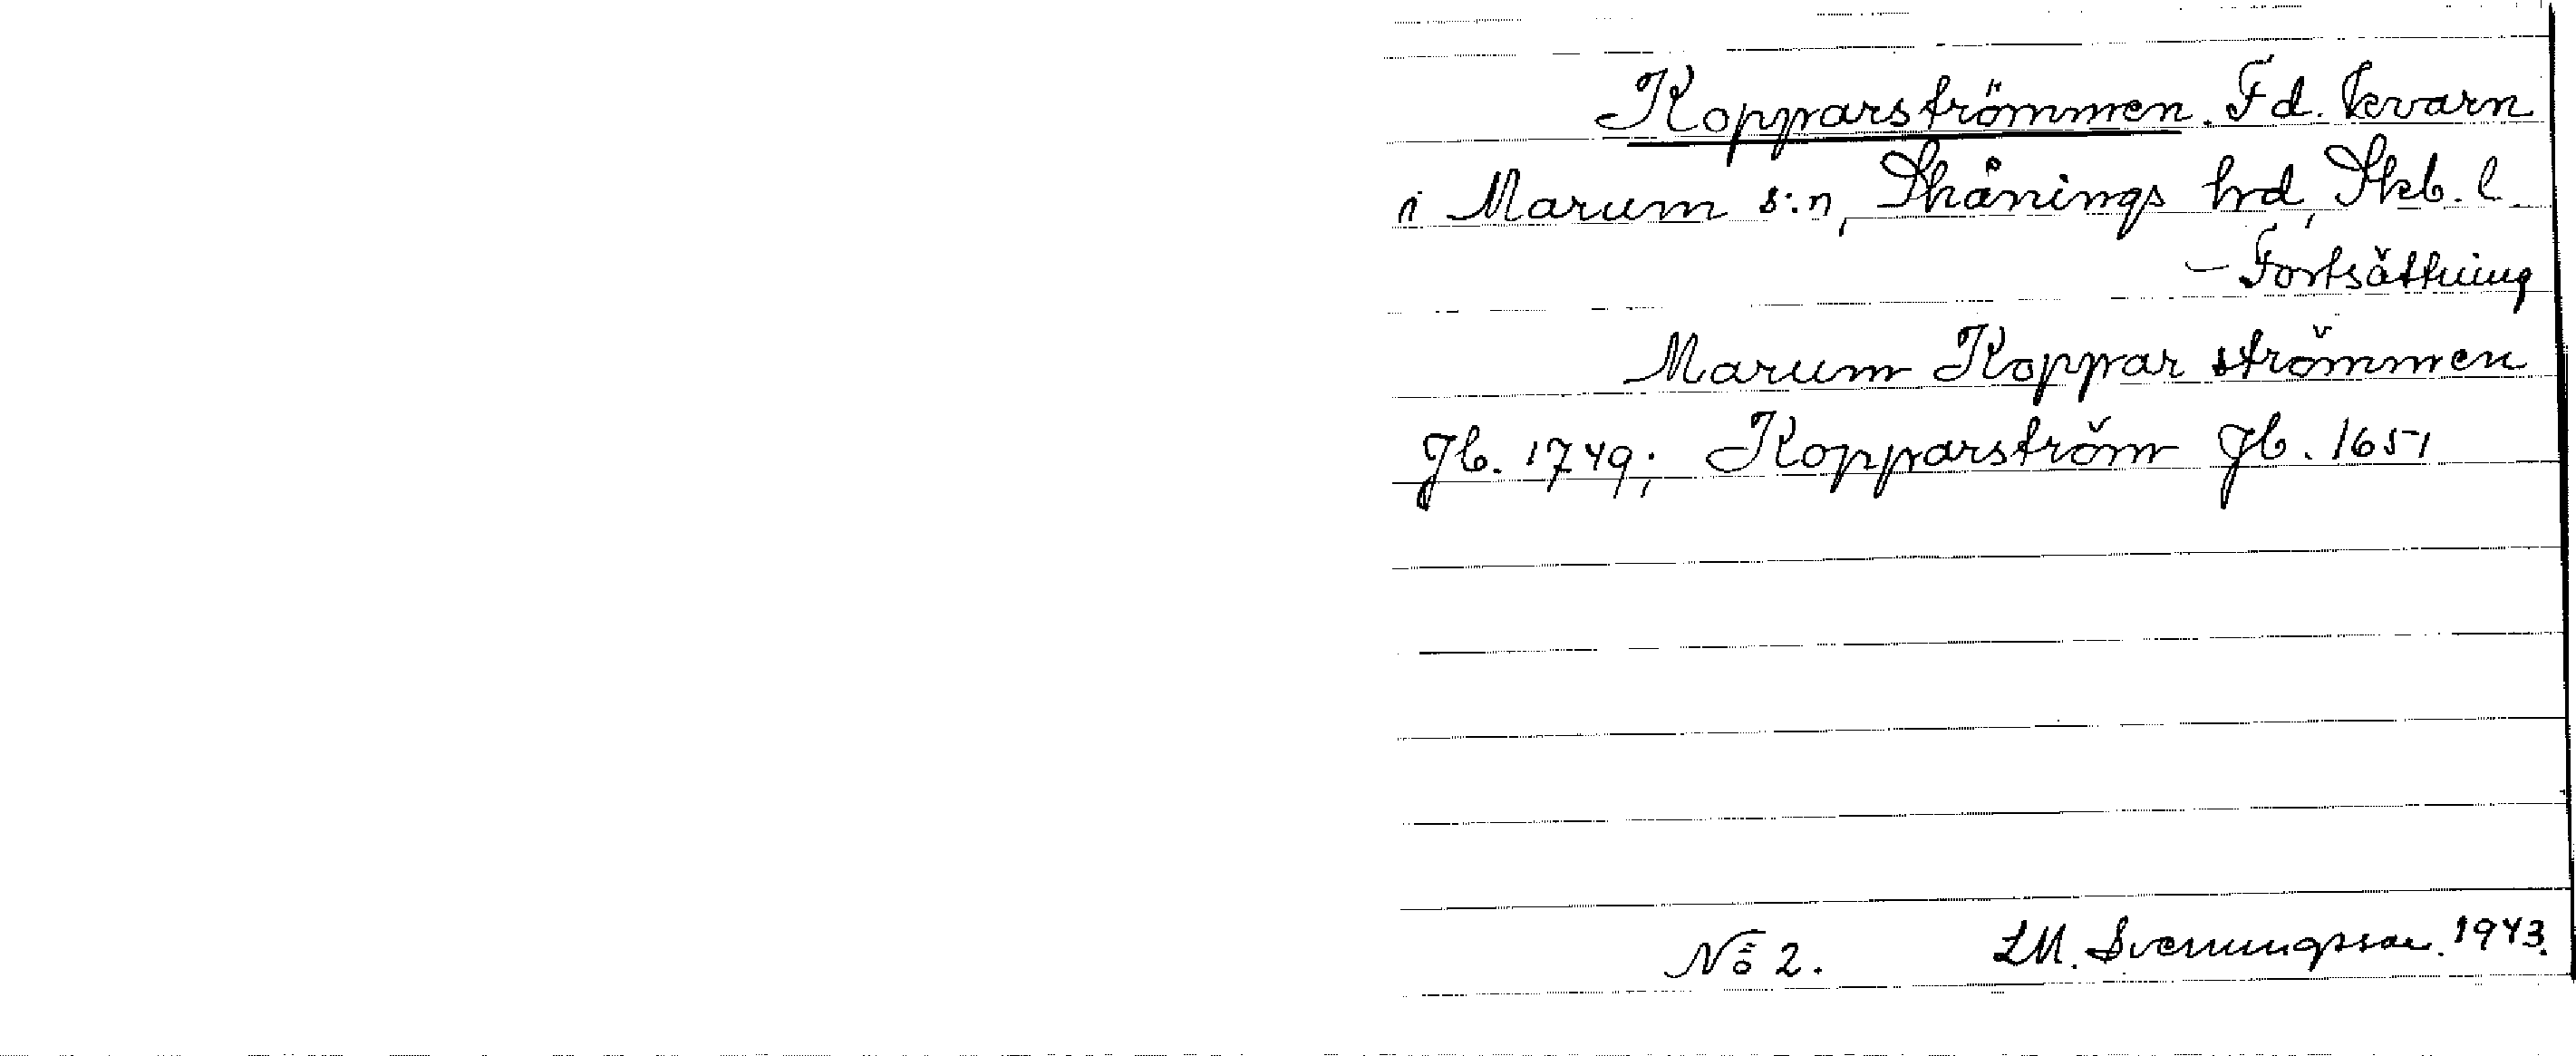 Kopparströmmen. Fd. kvarn
i Marum s:n, Skånings hrd, Skb. l.
– Fortsättning
Marum Koppar strömmen
Jb. 1749; Kopparström Jb. 1651
No 2. LM. Svenungsson. 1943.